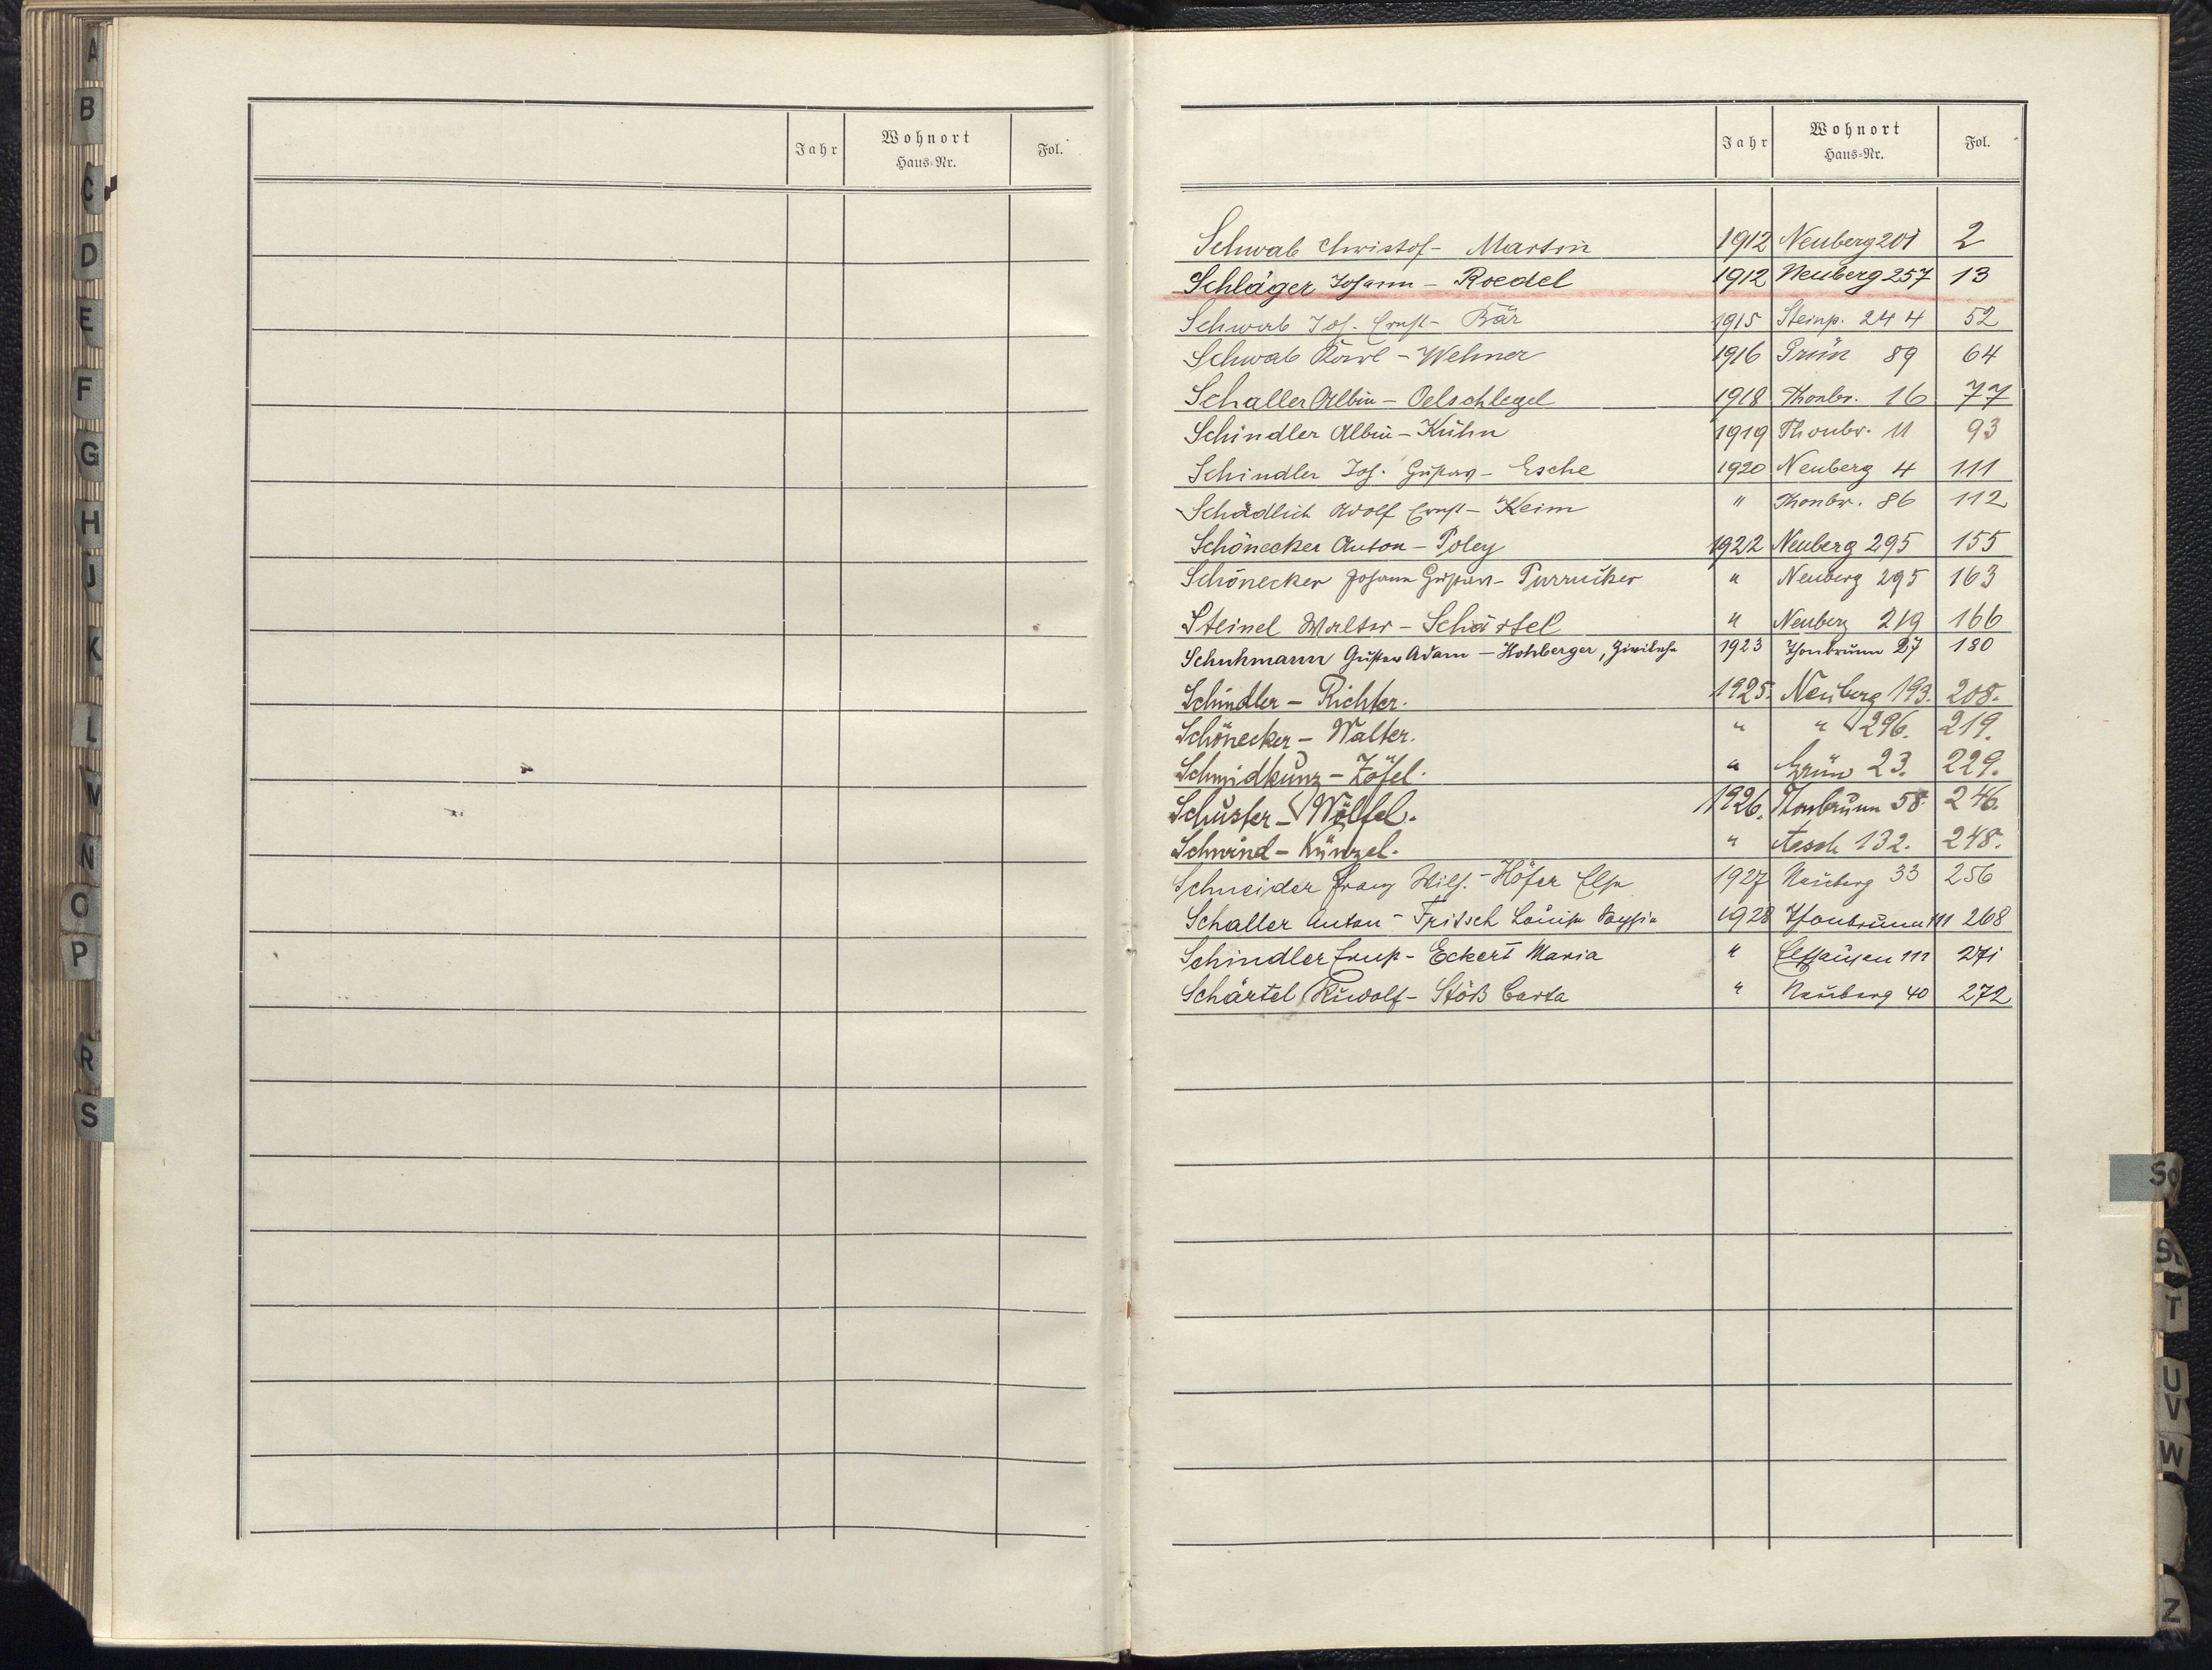 A
B
C
D
E
F
G
H
J
K
L
N
O
P
R
S
Jahr Wohnort Haus-Nr. Fol.
Jahr Wohnort Haus-Nr. Fol.
Schwab Christof - Martin 1912 Neuberg 201 2
Schläger Johann - Roedel 1912 Neuberg 257 13
Schwab Joh. Ernst - Bär 1915 Steinp. 244 52
Schwab Karl - Wehner 1916 Grün 89 64
Schaller Albin - Oelschlegel 1918 Thonbr. 16 77
Schindler Albin - Kühn 1919 Thonbr. 11 93
Schindler Joh. Gustav - Esche 1920 Neuberg 4 111
Schädlich Adolf Ernst - Keim " Thonbr. 86 112
Schönecker Anton - Poley 1922 Neuberg 295 155
Schönecker Johann Gustav - Purrucker " Neuberg 295 163
Steinel Walter - Schärtel " Neuberg 219 166
Schuhmann Gustav Adam - Hohberger, Zivilehe 1923 Thonbrunn 27 180
Schindler - Richter. 1925. Neuberg 193. 208.
Schönecker - Walter. " " 296. 219.
Schmidkunz - Zöfel. " Grün 23. 229.
Schuster - Wölfel. 1926. Thonbrunn 58. 246.
Schwind - Künzel. " Aesch 132. 248.
Schneider Franz Wilh. - Höfer Elsa 1927 Neuberg 33 256
Schaller Anton - Fritsch Louise 1928 Thonbrunn 111 268
Schindler Ernst - Eckert Maria " 111 271
Schärtel Rudolf - Stöß Berta " Neuberg 40 272
S
T
U
V
W
Z